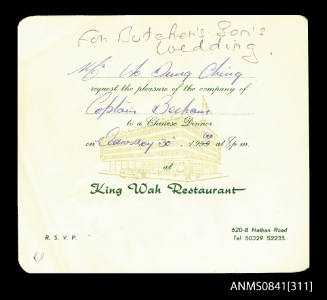 For Butcher's Son's
Wedding.
Mr. Ho Dung Ching
request the pleasure of the company of
Captain
to a Chinese Dinner
on 30 at 8 p.m.
at
King Wah Restaurant
R. S. V. P.
620-8 Nathan Road
Tel. 50329 52235
ANMS0841[311]